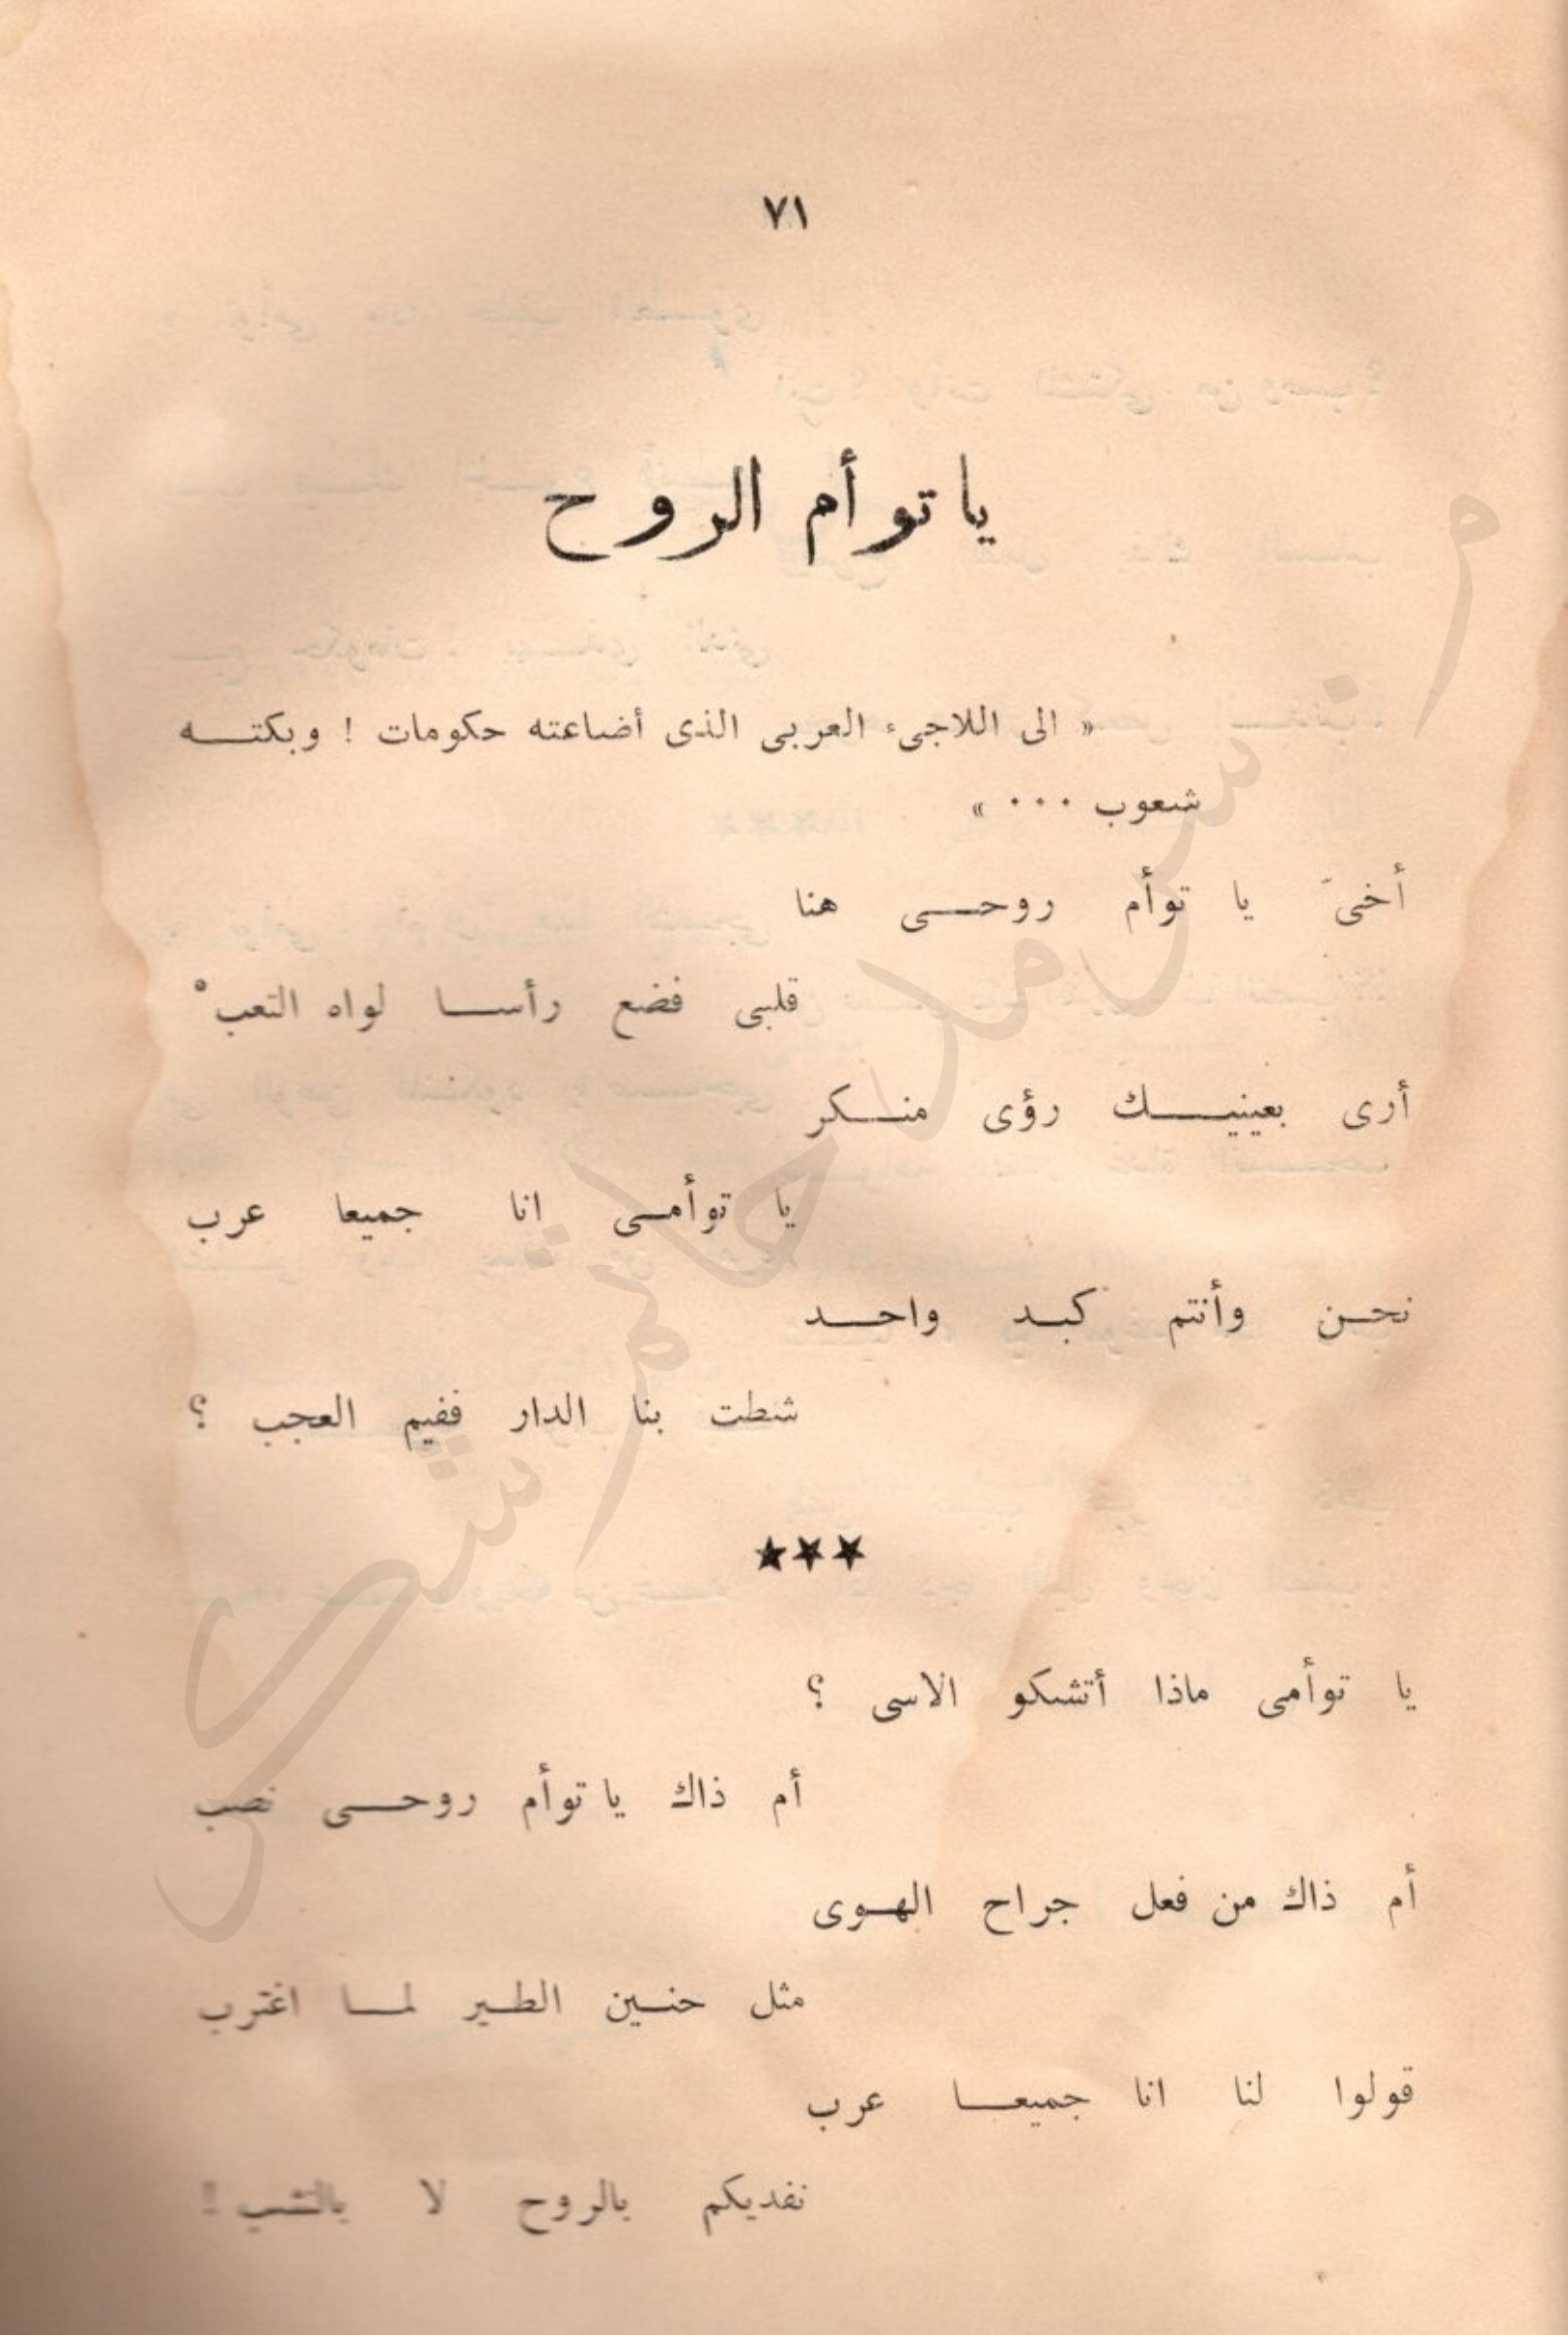 ٧١
يا توأم الروح
« الى اللاجىء العربى الذى أضاعته حكومات ! وبكتـــه
شعوب ٠٠٠ »
أخىّ يا توأم روحـــى هنا
قلبى فضع رأســـا لواه التعبْ
أرى بعينيـــــك رؤى منـــكر
يا توأمـــى انا جميعا عرب
نحـــن وأنتم كبـــد واحـــد
شطت بنا الدار ففيم العجب ؟
★★★
يا توأمى ماذا أتشكو الاسى ؟
أم ذاك يا توأم روحـــى نصب
أم ذاك من فعل جراح الهـــوى
مثل حنـــين الطـــير لمـــا اغترب
قولوا لنا انا جميعـــا عرب
نفديكم بالروح لا !